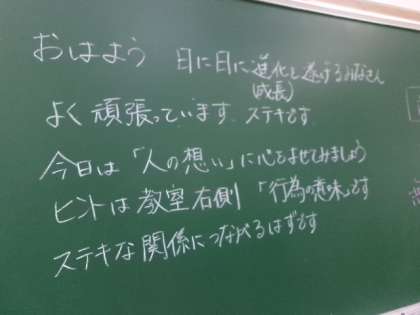 おはよう 日に日に進化を遂げるみなさん
(成長)
よく頑張っています。ステキです
今日は「人の想い」に心をよせてみましょう
ヒントは教室右側「行為の意味」です
ステキな関係につながるはずです